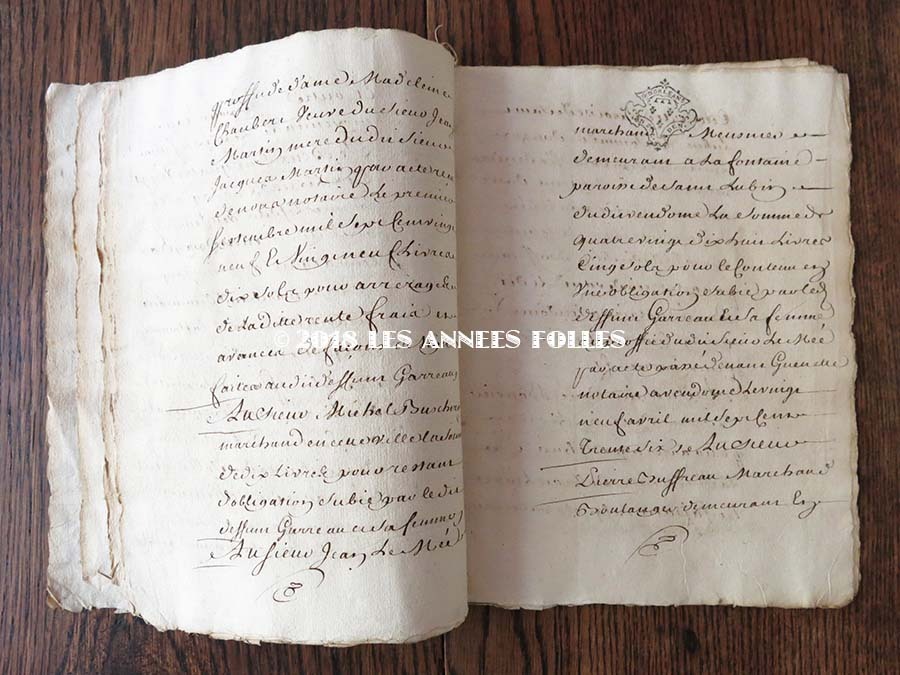 proffit de dame Madeleine
Chaubert Veuve du sieur Jean
Martin mere dudit sieur
Jacques Martin par acte receu
de nous notaire le premier
septembre mil sept cent vingt
neuf Et Vingt neuf Livres
dix sols pour arrerages
de Laditte rente frais et
avances de
faites audit deffunt Garreau
Au sieur Michel
marchand en cette ville la somme
de dix Livres pour restant
d'obligation subie par le dit
deffunt Garreau et sa femme
Au sieur Jean Le Meé
marchand Meusnier
demeurant a La fontaine
paroisse de saint Lubin
dudit vendome La somme de
quatre vingt dix huit Livres
Cinq sols pour le Contenu en
Une obligation subie par led
deffunt Garreau et sa femme
au proffit dudit sieur Le Meé
par acte passé devant
notaire a vendome le vingt
neuf avril mil sept cent
Trente six Au sieur
Pierre Marchand
Boulanger demeurant En
© 2018 LES ANNEES FOLLES